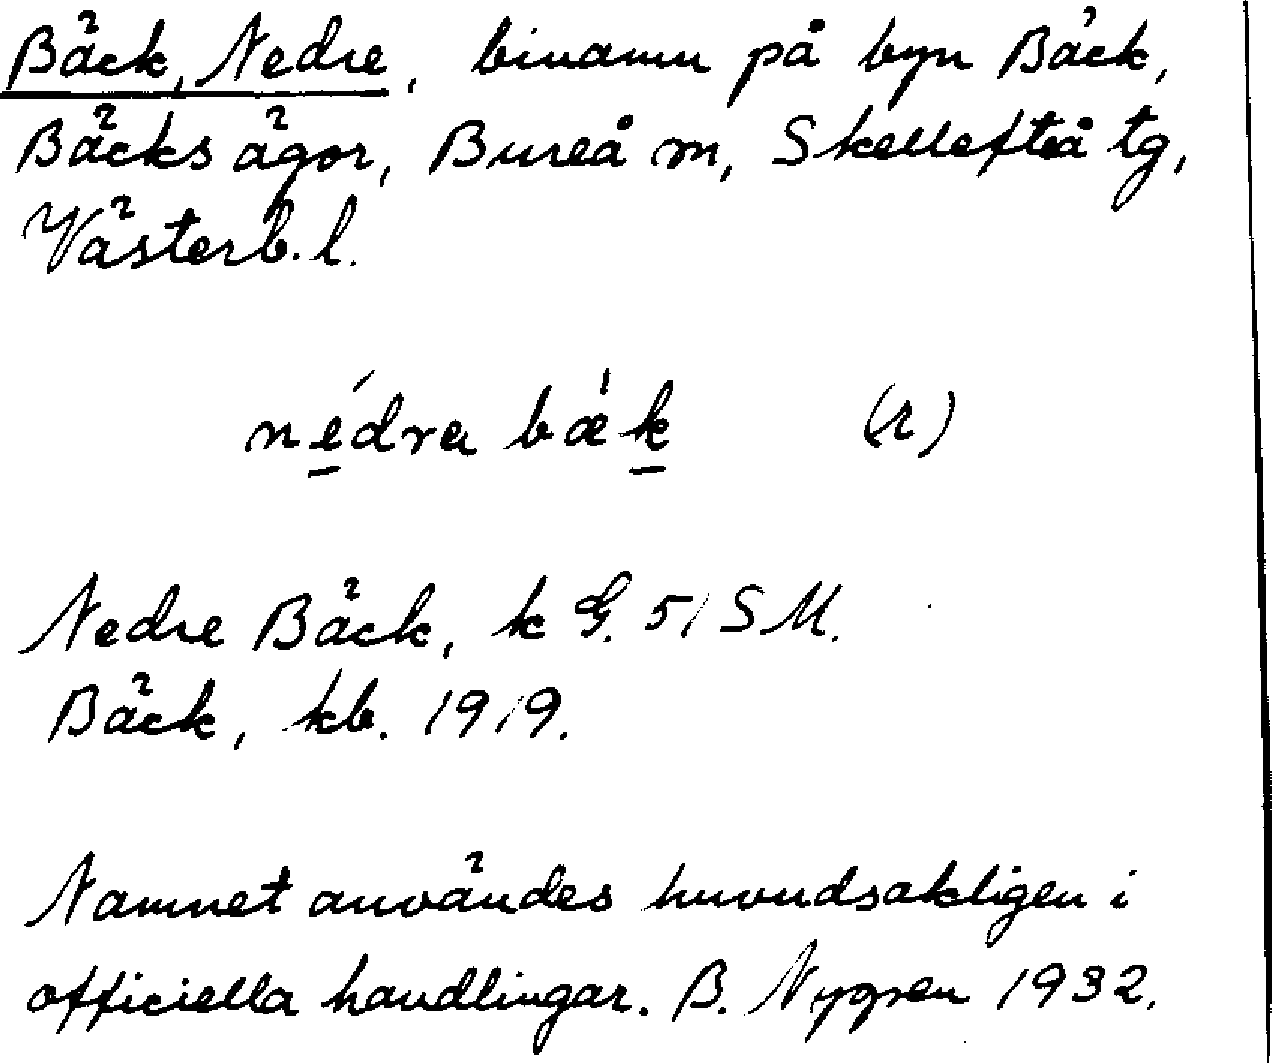 Bäck, Nedre, binamn på byn Bäck,
Bäcks ägor, Bureå m, Skellefteå tg,
Västerb. l.
nédra bæ̍k (r)
Nedre Bäck, k G. 51 SM.
Bäck, kb. 1919.
Namnet användes huvudsakligen i
officiella handlingar. B. Nygren 1932.